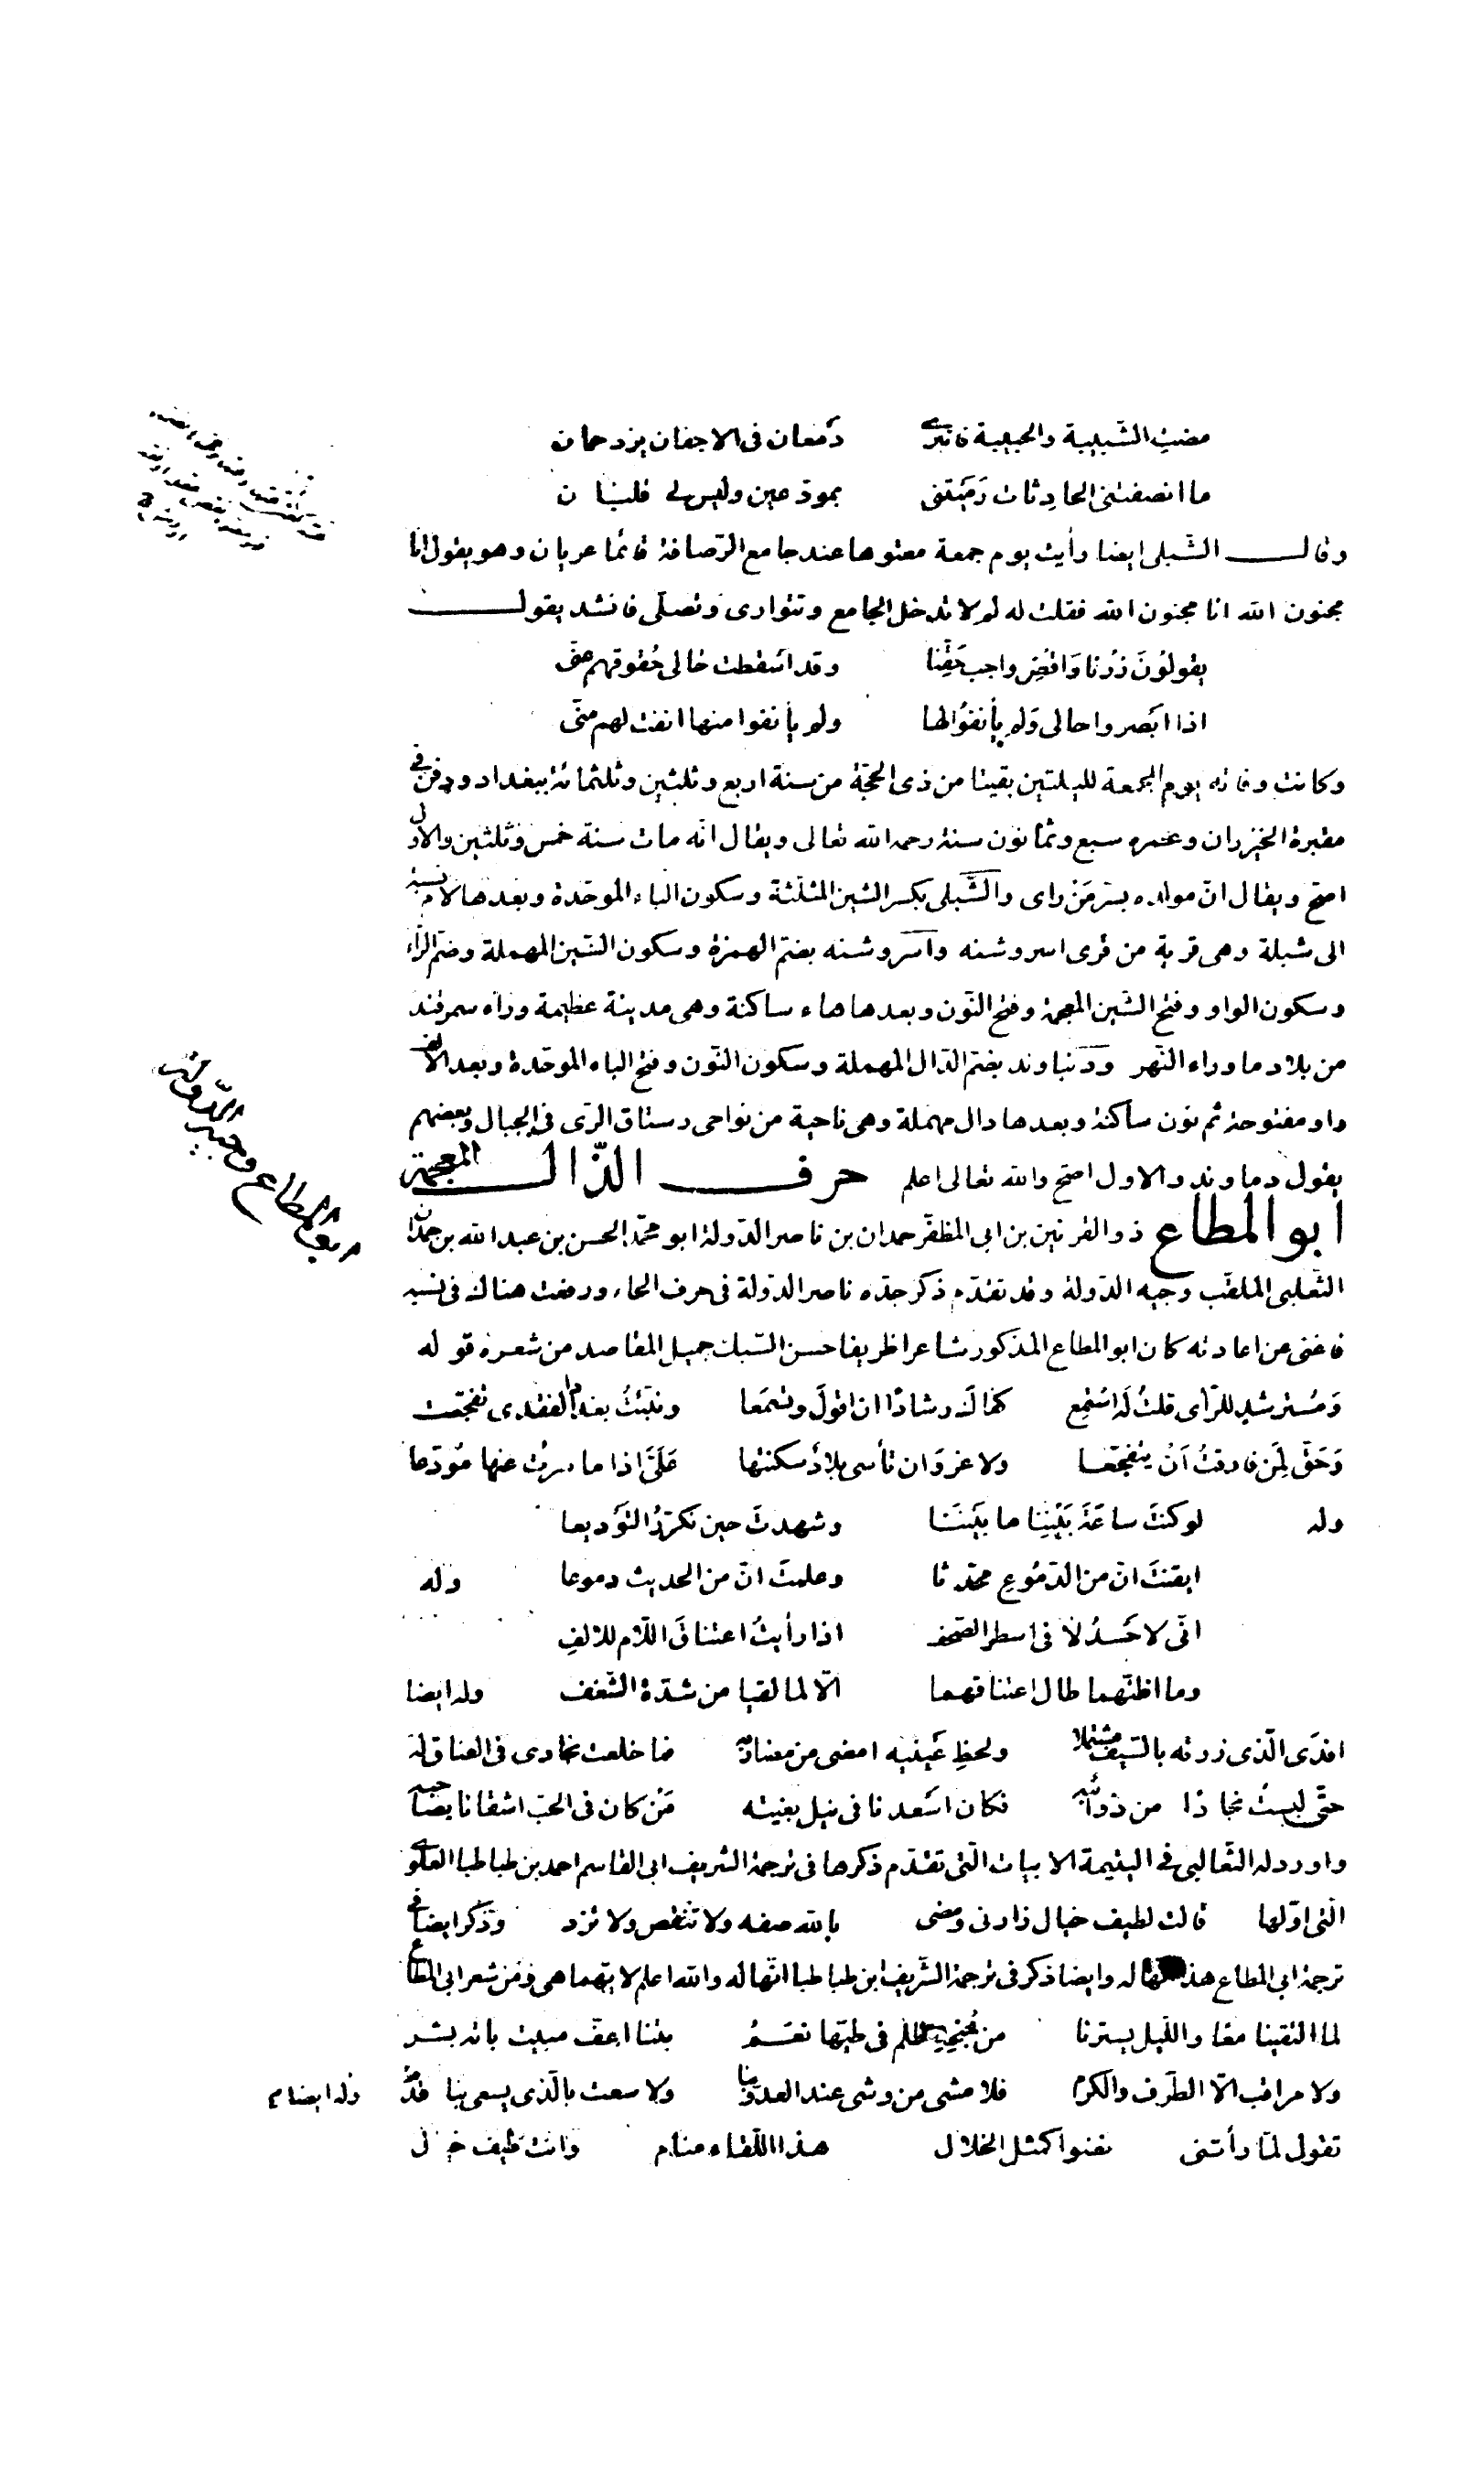 مضت الشّبيبة والحبيبة فانبرى دَمعان فى الاجفان يزدحمان
ما انصفتنى الحادِثات رَمَيَتنى بمودّعين وليس لى قلبان
وقال الشّبلى ايضا رأيت يوم جمعة معتوها عند جامع الرّصافة قائما عريان وهو يقول انا
مجنون الله انا مجنون الله فقلت له لم لا تدخل الجامع وتتوارى وتصلّى فانشد يقول
يقولُونَ زُرنا وَاقضِ واجب حَقِّنا وقد اسْقطت حالى حُقوقهم عنّى
اذا ابْصروا حالى وَلم يأنفوُا لها ولم يأنفوا منها انفت لهم منّى
وكانت وفاته يوم الجمعة لليلتين بقيتا من ذى الحجّة من سنة اربع وثلثين وثلثمائة ببغداد ودفن فى
مقبرة الخيزران وعمره سبع وثمانون سنة رحمه الله تعالى ويقال انّه مات سنة خمس وثلثين والاول
اصحّ ويقال انّ مولده بسرّمَنْ راى والشّبلى بكسر الشين المثلّثة وسكون الباء الموحّدة وبعدها لام نسبة
الى شبلة وهى قرية من قرى اسروشنه واسروشنه بضمّ الهمزة وسكون السّين المهملة وضمّ الرّاء
وسكون الواو وفتح الشّين المعجمة وفتح النّون وبعدها هاء ساكنة وهى مدينة عظيمة وراء سمرقند
من بلاد ما وراء النّهر ودنباوند بضمّ الدّال المهملة وسكون النّون وفتح الباء الموحّدة وبعد الالف
واو مفتوحة ثم نون ساكنة وبعدها دال مهملة وهى ناحية من نواحى رستاق الرّى فى الجبال وبعضهم
يقول دماوند والاول اصحّ والله تعالى اعلم حرف الذّال المعجمة
ابو المطاع ذو القرنين بن ابى المظفّر حمدان بن ناصر الدّولة ابو محمّد الحسن بن عبد الله بن حمدان
التّغلبى الملقّب وجيه الدّولة وقد تقدّم ذكر جدّه ناصر الدّولة فى حرف الحاء ورفعت هناك فى نسبه
فاغنى عن اعادته كان ابو المطاع المذكور شاعرا ظريفا حسن السّبك جميل المقاصد من شعره قوله
وَمُسترشدٍ للرّأى قلتُ لَه استَمِع كفاكَ رشادًا ان اقولَ وتسْمَعا ونبّئتُ بغداد الفقدى تفجّعت
وَحَقّ لِمَن فارقتُ اَنْ يتفجّعا ولا غروَ ان تأسى بلادٌ سكنتها عَلَىّ اذا ما سرْت عنها مُودّعا
وله لو كنتَ ساعَةَ بَيْنِنا ما بَيْنَنا وشهدتَ حين نكرّرُ التوْديعا
ايقنتَ انّ من الدّمُوعِ محدّثا وعلمتَ انّ من الحديث دموعا وله
انّى لاحَسدُ لا فى اسطر الصّحف اذا رأيتُ اعتناقَ اللّام للالفِ
وما اظنّهما طال اعتناقهما الّا لما لقيا من شدّة الشّغف وله ايضا
افدّى الّذى زرته بالسّيف مشتملا ولحظِ عَينيه امضى من مضاربه فما خلعت نجادى فى العناق له
حتّى لبستُ نجادًا من ذوائبه فكان اسْعدنا فى نيل بغيته مَنْ كان فى الحبّ اشقانا بصاحبه
واورد له الثّعالبى فى اليتيمة الابيات الّتى تقدّم ذكرها فى ترجمة الشّريف ابى القاسم احمد بن طباطبا العلوى
الّتى اوّلها قالت لطيف خيال زارنى ومضى بالله صفه ولا تنقص ولا تزد وذكر ايضا فى
ترجمة ابى المطاع هذا انّها له وايضا ذكر فى ترجمة الشّريف ابن طباطبا انّها له والله اعلم لايّهما هى ومن شعر ابى المطاع
لما التقينا معًا والليل يسترنا من جُنحِه ظلم فى طيّها نعَمُ بتنا اعفّ مبيت باته بشر
ولا مراقب الّا الطّرف والكرم فلا مشى من وشى عند العدوّ بنا ولا سعت بالّذى يسعى بنا قدم وله ايضا
تقول لمّا رأتنى نضوا كمثل الخلال هذا اللّقاء منام وانت طَيف خيال
ابو المطاع وجيه الدّولة